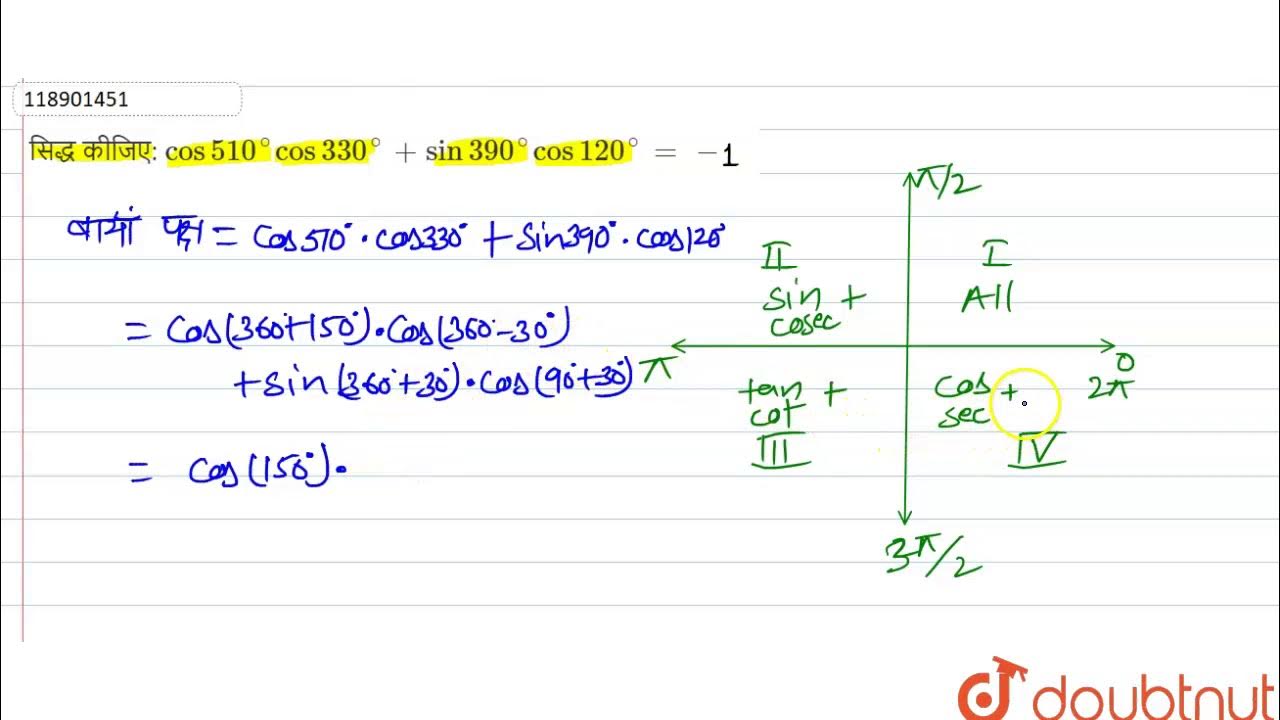 118901451
सिद्ध कीजिए: cos 510° cos 330° + sin 390° cos 120° = -1
बायां पक्ष = cos 510° · cos 330° + sin 390° · cos 120°
= cos(360° + 150°) · cos(360° - 30°)
+ sin(360° + 30°) · cos(90° + 30°)
= cos(150°) ·
π/2
II
I
sin +
cosec
All
π
0
2π
tan +
cot
III
cos +
sec
IV
3π/2
doubtnut